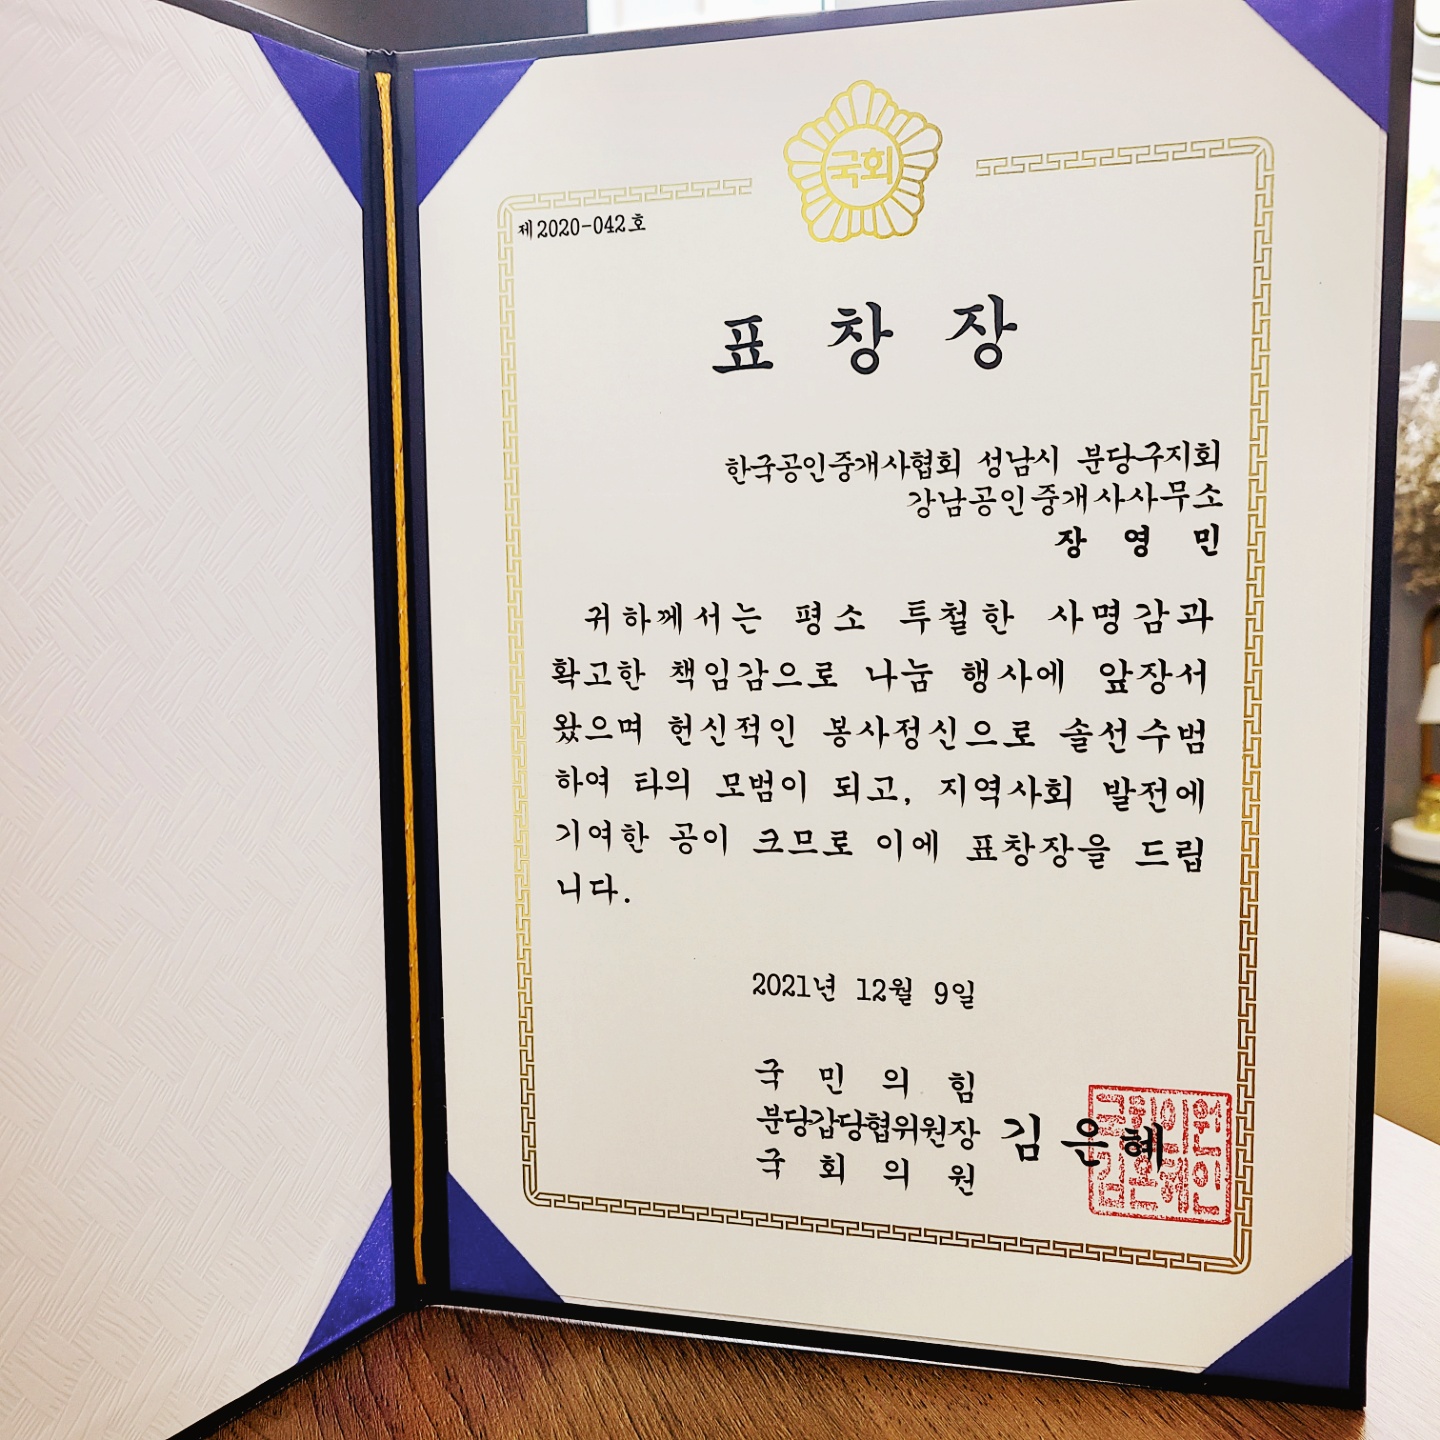 국회
제2020-042호
표 창 장
한국공인중개사협회 성남시 분당구지회
강남공인중개사사무소
장 영 민
귀하께서는 평소 투철한 사명감과
확고한 책임감으로 나눔 행사에 앞장서
왔으며 헌신적인 봉사정신으로 솔선수범
하여 타의 모범이 되고, 지역사회 발전에
기여한 공이 크므로 이에 표창장을 드립
니다.
2021년 12월 9일
국 민 의 힘
분당갑당협위원장 김은혜
국 회 의 원
국회의원
김은혜인